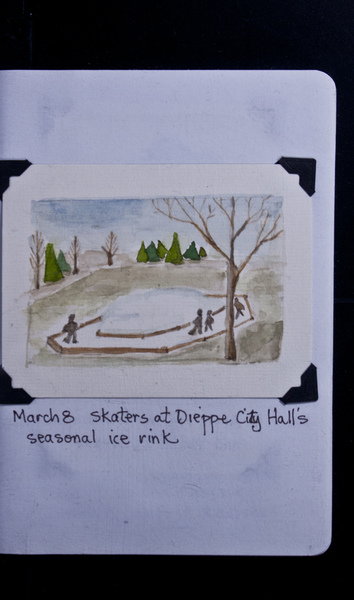 March 8 skaters at Dieppe City Hall's
seasonal ice rink